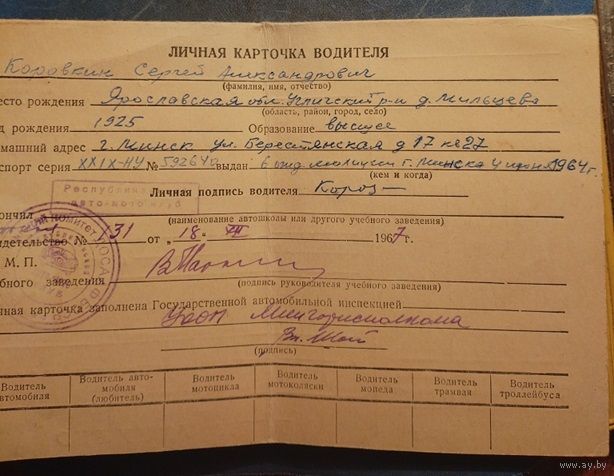 ЛИЧНАЯ КАРТОЧКА ВОДИТЕЛЯ
Коровкин Сергей Александрович
(фамилия, имя, отчество)
есто рождения Ярославская обл. Угличский р-н д. Мильцево
(область, район, город, село)
д рождения 1925 Образование высшее
машний адрес г. Минск ул. Берестянская д 17 кв 27
спорт серия XXIX-НУ № 592640 выдан 6 отд милиции г. Минска 4 июня 1964 г.
(кем и когда)
Личная подпись водителя
Республика
авто-мото клуб
кончил
(наименование автошколы или другого учебного заведения)
идетельство № 131 от "18" XII 1967 г.
М. П.
бного заведения
(подпись руководителя учебного заведения)
чная карточка заполнена Государственной автомобильной инспекцией
Мингорисполкома
(подпись)
Водитель автомобиля
Водитель автомобиля (любитель)
Водитель мотоцикла
Водитель мотоколяски
Водитель мопеда
Водитель трамвая
Водитель троллейбуса
www.ay.by